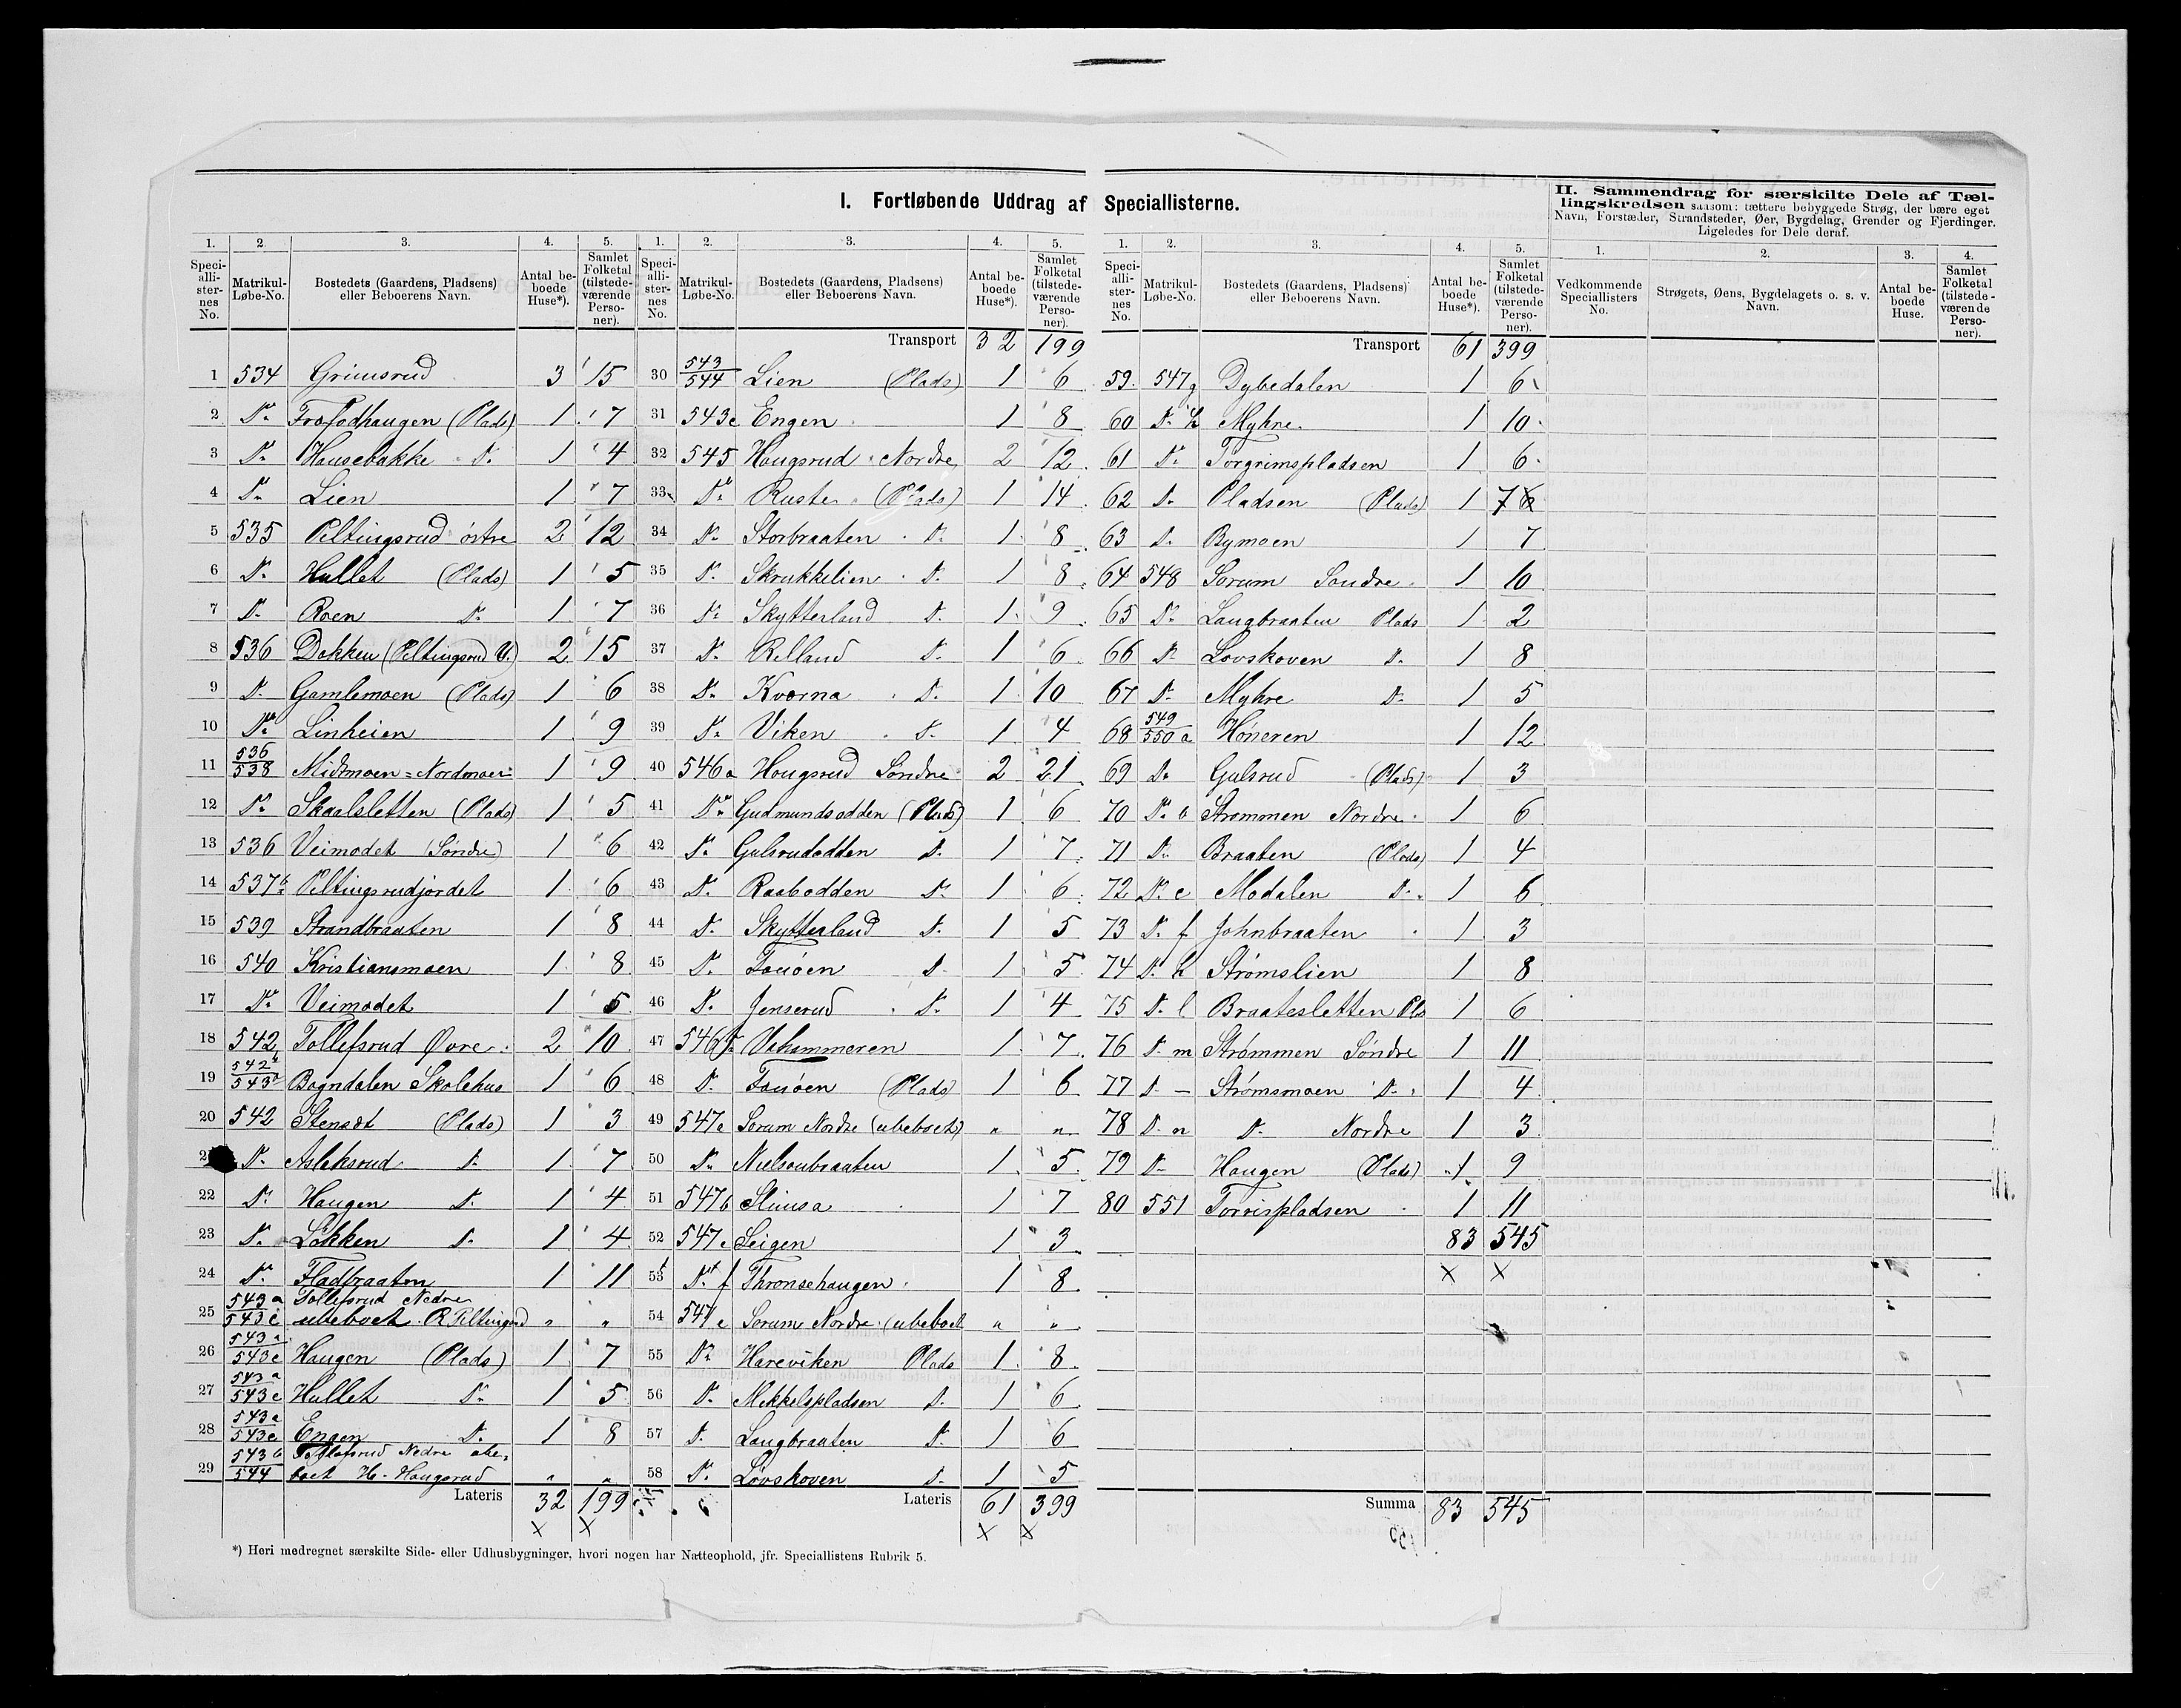 I. Fortløbende Uddrag af Speciallisterne.
1. 2. 3. 4. 5.
Speciallisternes No. Matrikul-Løbe-No. Bostedets (Gaardens, Pladsens) eller Beboerens Navn. Antal beboede Huse*). Samlet Folketal (tilstedeværende Personer).
1 534 Grimsrud 3 15
2 Do Frofodhaugen (Plads) 1 7
3 Do Hausebakke Do 1 4
4 Do Lien 1 7
5 535 Piltingsrud østre 2 12
6 Do Hullet (Plads) 1 5
7 Do Roen Do 1 7
8 536 Dokken (Piltingsrud V.) 2 15
9 Do Gamlemoen (Plads) 1 6
10 Do Linheien 1 9
11 536/538 Midtmoen = Nordmoen 1 9
12 Do Skaalsletten (Plads) 1 5
13 536 Veimodet (Søndre) 1 6
14 537b Piltingsrudjordet 1 6
15 539 Strandbraaten 1 8
16 540 Kristiansmoen 1 8
17 Do Veimodet 1 5
18 542 Tollefsrud Øvre 2 10
19 542b/543a Bagndalen Skolehus 1 6
20 542 Stensæt (Plads) 1 3
2 Do Asleksrud Do 1 7
22 Do Haugen Do 1 4
23 Do Løkken Do 1 4
24 Do Fladbraaten 1 11
25 543a/543c Tollefsrud Nedre ubeboet. P. Piltingsrud " "
26 543a/543c Haugen (Plads) 1 7
27 543a/543c Hullet Do 1 5
28 543a/543c Engen Do 1 8
29 543b/544 Tollefsrud Nedre ubeboet H. Haugsrud " "
Lateris 32 199
1. 2. 3. 4. 5.
Speciallisternes No. Matrikul-Løbe-No. Bostedets (Gaardens, Pladsens) eller Beboerens Navn. Antal beboede Huse*). Samlet Folketal (tilstedeværende Personer).
Transport 32 199
30 543/544 Lien (Plads) 1 6
31 543c Engen 1 8
32 545 Hougsrud Nordre 2 12
33 Do Ruste (Plads) 1 14
34 Do Storbraaten Do 1 8
35 Do Skrukkelien Do 1 8
36 Do Skytterland Do 1 9
37 Do Rilland Do 1 6
38 Do Kværna Do 1 10
39 Do Viken Do 1 4
40 546a Hougsrud Søndre 2 21
41 Do Gudmundsodden (Plads) 1 6
42 Do Gulsrudodden Do 1 7
43 Do Raabodden Do 1 6
44 Do Skytterland Do 1 5
45 Do Do 1 5
46 Do Jenserud Do 1 4
47 546b Vehammeren 1 7
48 Do (Plads) 1 6
49 547a Sorum Nordre (ubeboet) " "
50 Do Nielsenbraaten 1 5
51 547b Slimsa 1 7
52 547c Leigen 1 3
53 Do f Thronsehaugen 1 8
54 547e Sorum Nordre (ubeboet " "
55 Do Hareviken Plads 1 8
56 Do Mikkelspladsen Do 1 6
57 Do Langbraaten Do 1 6
58 Do Løvskoven Do 1 5
Lateris 61 399
1. 2. 3. 4. 5.
Speciallisternes No. Matrikul-Løbe-No. Bostedets (Gaardens, Pladsens) eller Beboerens Navn. Antal beboede Huse*). Samlet Folketal (tilstedeværende Personer).
Transport 61 399
59 547g Dybedalen 1 6
60 Do h Myhre 1 10
61 Do Torgrimspladsen 1 6
62 Do Pladsen (Plads) 1 7
63 Do Rymoen 1 7
64 548 Sorum Søndre 1 10
65 Do Langbraaten Plads 1 2
66 Do Lovskoven Do 1 8
67 Do Myhre Do 1 5
68 549/550a Høneren 1 12
69 Do Gulsrud (Plads) 1 3
70 Do b Strømmen Nordre 1 6
71 Do Braaten (Plads) 1 4
72 Do c Modalen Do 1 6
73 Do f Johnbraaten 1 3
74 Do h Strømslien 1 8
75 Do l Braatesletten Pls 1 6
76 Do m Strømmen Søndre 1 11
77 Do - Strømsmoen Do 1 4
78 Do n Do Nordre 1 3
79 Do Haugen (Plads) 1 9
80 551 Torrispladsen 1 11
83 545
Summa 83 545
II. Sammendrag for særskilte Dele af Tællingskredsen saasom: tættere bebyggede Strøg, der bære eget Navn, Forstæder, Strandsteder, Øer, Bygdelag, Grender og Fjerdinger. Ligeledes for Dele deraf.
1. 2. 3. 4.
Vedkommende Speciallisters No. Strøgets, Øens, Bygdelagets o. s. v. Navn. Antal beboede Huse. Samlet Folketal (tilstedeværende Personer).
*) Heri medregnet særskilte Side- eller Udhusbygninger, hvori nogen har Natteophold, jfr. Speciallistens Rubrik 5.